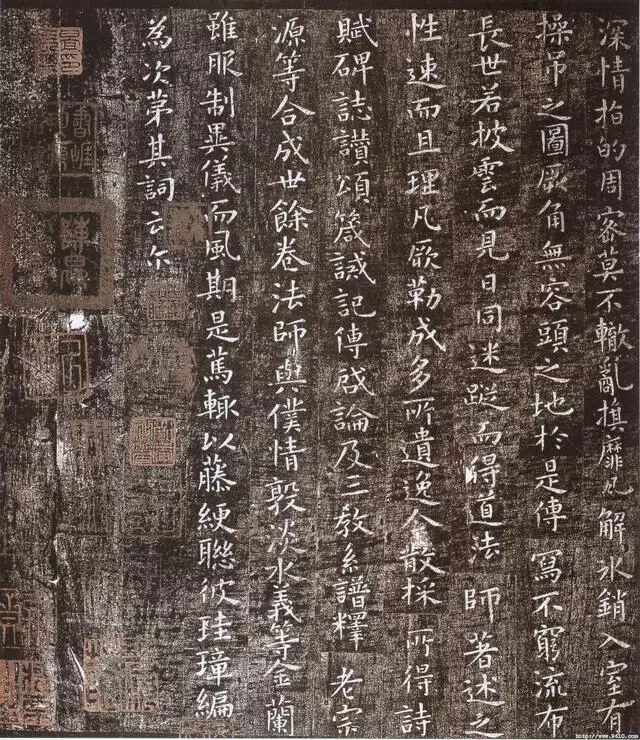 深情指的周密莫不轍亂旗靡凡解冰銷入室有
操弔之圖厥角無容頭之地於是傳寫不窮流布
長世若披雲而見日同迷蹤而得道法師著述之
性速而且理凡厥勒成多所遺逸今散採所得詩
賦碑誌讃頌箴誡記傳啓論及三教系譜釋老宗
源等合成卅餘卷法師與僕情敦淡水義等金蘭
雖服制異儀而風期是篤輙以藤綆聯彼珪璋編
為次第其詞云尔
http://www.9610.com